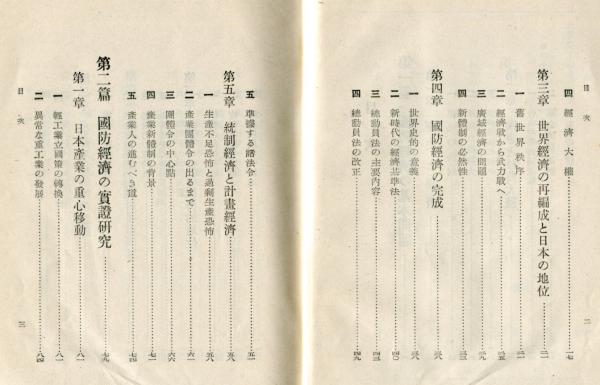 目次
四 經濟大權……一七
第三章 世界經濟の再編成と日本の地位……二一
一 舊世界秩序……二一
二 經濟戰から武力戰へ……二五
三 廣域經濟の問題……二七
四 新體制の必然性……三三
第四章 國防經濟の完成……三八
一 世界史的の意義……三八
二 新時代の經濟基準法……四〇
三 總動員法の主要內容……四三
四 總動員法の改正……四九
二
目次
五 準據する諸法令……五一
第五章 統制經濟と計畫經濟……五八
一 生產不足恐怖と過剩生產恐怖……五八
二 產業團體令の出るまで……六二
三 團體令の中心點……六六
四 產業新體制の背景……七一
五 產業人の進むべき道……七四
第二篇 國防經濟の實證硏究……七九
第一章 日本產業の重心移動……八一
一 輕工業立國策の轉換……八一
二 異常な重工業の發展……八四
三